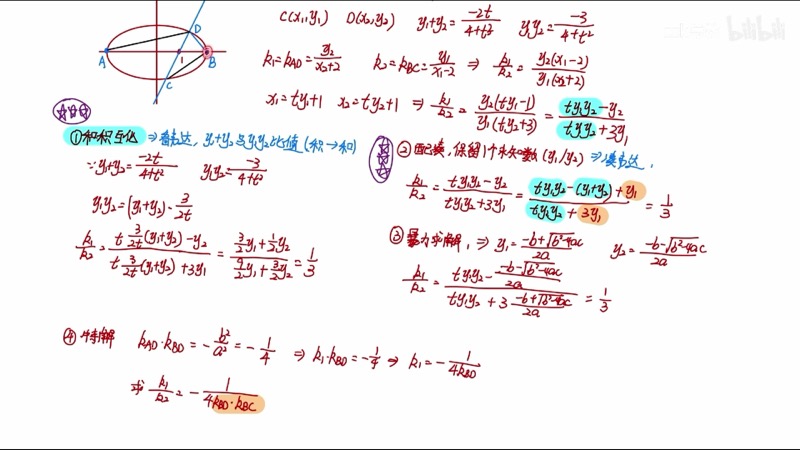 bilibili
C(x₁,y₁) D(x₂,y₂) y₁+y₂=\frac{-2t}{4+t²} y₁y₂=\frac{-3}{4+t²}
D
A
1
B
C
k₁=k_{AD}=\frac{y₂}{x₂+2} k₂=k_{BC}=\frac{y₁}{x₁-2} ⇒ \frac{k₁}{k₂}=\frac{y₂(x₁-2)}{y₁(x₂+2)}
x₁=ty₁+1 x₂=ty₂+1 ⇒ \frac{k₁}{k₂}=\frac{y₂(ty₁-1)}{y₁(ty₂+3)}=\frac{ty₁y₂-y₂}{ty₁y₂+3y₁}
①和积互化 ⇒看表达, y₁+y₂与y₁y₂比值(积→和)
∵y₁+y₂=\frac{-2t}{4+t²} y₁y₂=\frac{-3}{4+t²}
y₁y₂=(y₁+y₂)·\frac{3}{2t}
\frac{k₁}{k₂}=\frac{t\frac{3}{2t}(y₁+y₂)-y₂}{t\frac{3}{2t}(y₁+y₂)+3y₁}=\frac{\frac{3}{2}y₁+\frac{1}{2}y₂}{\frac{9}{2}y₁+\frac{3}{2}y₂}=\frac{1}{3}
②配凑,保留1个未知数(y₁/y₂)⇒凑表达,
\frac{k₁}{k₂}=\frac{ty₁y₂-y₂}{ty₁y₂+3y₁}=\frac{ty₁y₂-(y₁+y₂)+y₁}{ty₁y₂+3y₁}=\frac{1}{3}
③暴力求解, ⇒ y₁=\frac{-b+\sqrt{b²-4ac}}{2a} y₂=\frac{-b-\sqrt{b²-4ac}}{2a}
\frac{k₁}{k₂}=\frac{ty₁y₂-\frac{-b-\sqrt{b²-4ac}}{2a}}{ty₁y₂+3\frac{-b+\sqrt{b²-4ac}}{2a}}=\frac{1}{3}
④ 解 k_{AD}·k_{BD}=-\frac{b²}{a²}=-\frac{1}{4} ⇒k₁·k_{BD}=-\frac{1}{4}⇒k₁=-\frac{1}{4k_{BD}}
求\frac{k₁}{k₂}=-\frac{1}{4k_{BD}·k_{BC}}